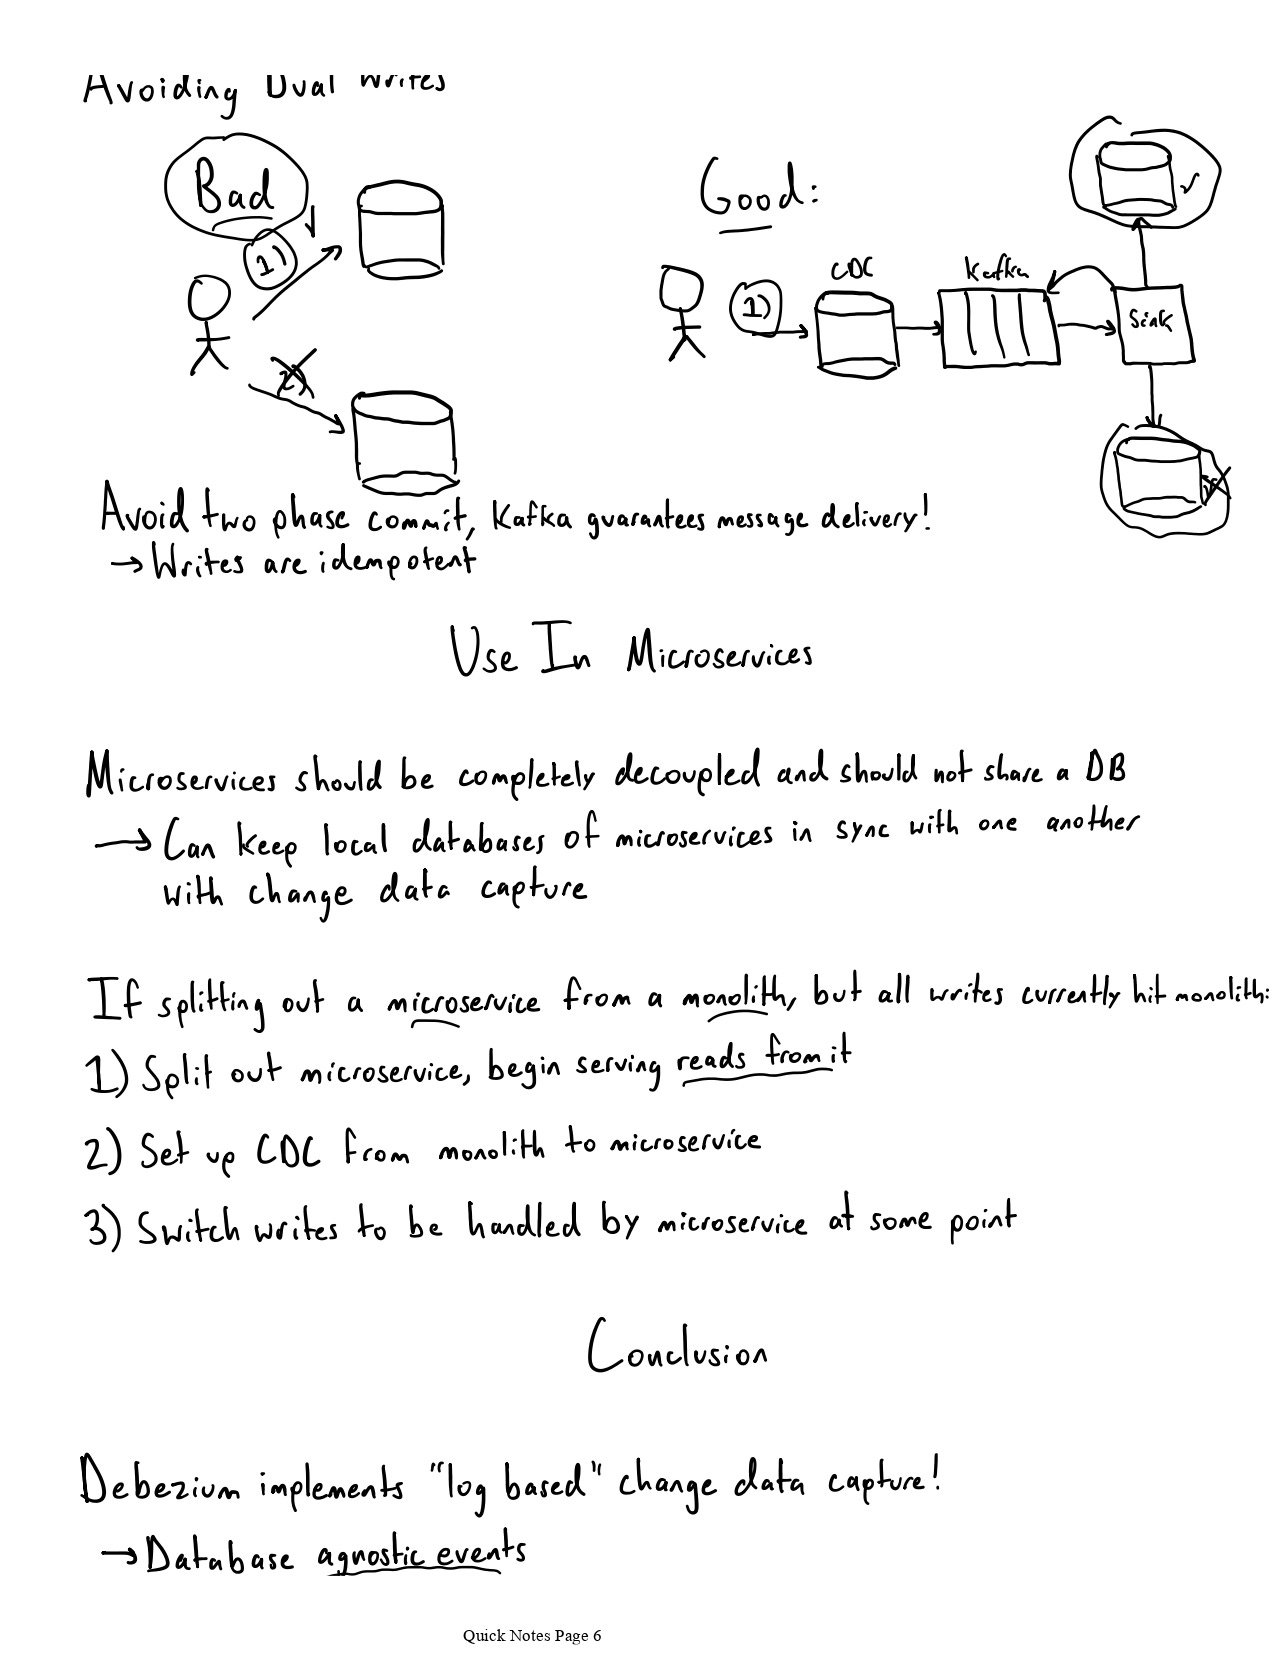 Avoiding Dual Writes
Bad
1)
2)
Good:
1)
CDC
Kafka
Sink
Avoid two phase commit, Kafka guarantees message delivery!
→ Writes are idempotent
Use In Microservices
Microservices should be completely decoupled and should not share a DB
→ Can keep local databases of microservices in sync with one another
with change data capture
If splitting out a microservice from a monolith, but all writes currently hit monolith:
1) Split out microservice, begin serving reads from it
2) Set up CDC from monolith to microservice
3) Switch writes to be handled by microservice at some point
Conclusion
Debezium implements "log based" change data capture!
→ Database agnostic events
Quick Notes Page 6